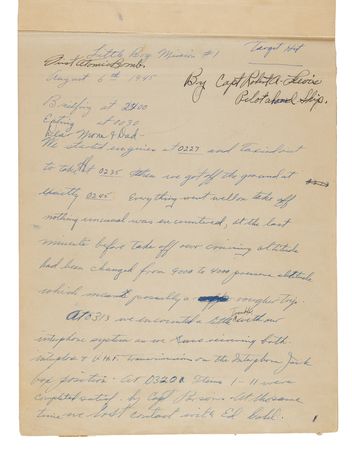 Little Boy Mission #1
Target Hit
First Atomic Bomb
August 6th 1945
By Capt Robert A. Lewis
Pilot ship.
Briefing at 2400
Eating at 0030
Dear Mom & Dad-
We started engines at 0227 and Taxied out
to take off 0235 then we got off the ground at
exactly 0245. Everything went well on take off
nothing unusual was encountered, at the last
minute before take off our cruising altitude
had been changed from 9000 to 4000 pressure altitude
which meant possibly a rougher trip.
At 0313 we encountered a little trouble with our
interphone system as we were receiving both
interphone & V.H.F. transmission on the Interphone Jack
box position. At 0320 Items 1-11 were
completed by Capt Parsons. At the same
time we lost contact with Ed
1